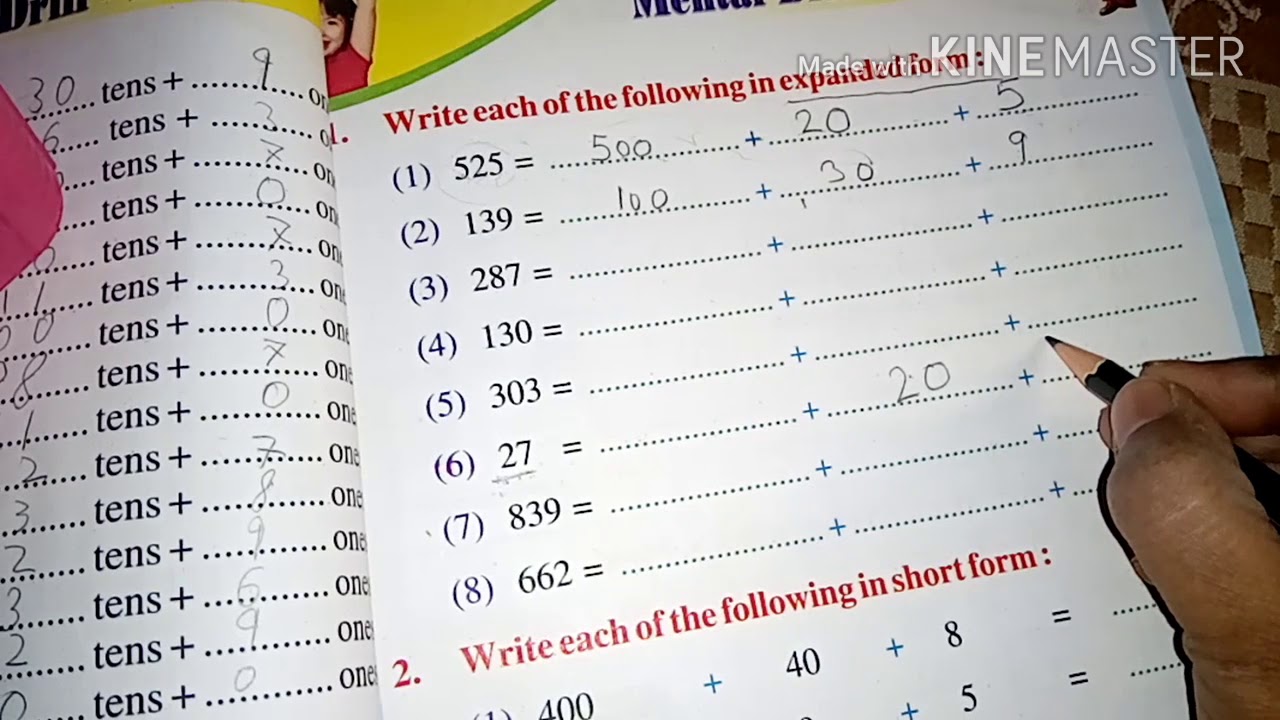 Made with KINEMASTER
30 tens + 9
6 tens + 3
tens + 7
tens + 0
tens + 7
tens + 3
tens + 0
8 tens + 7
1 tens + 0
2 tens + 7
3 tens + 8
2 tens + 9
3 tens + 6
2 tens + 9
0 tens + 0
1. Write each of the following in expanded form :
(1) 525 = 500 + 20 + 5
(2) 139 = 100 + 30 + 9
(3) 287 = + +
(4) 130 = + +
(5) 303 = + +
(6) 27 = + 20 +
(7) 839 = + +
(8) 662 = + +
2. Write each of the following in short form :
(1) 400 + 40 + 8 =
+ 5 =